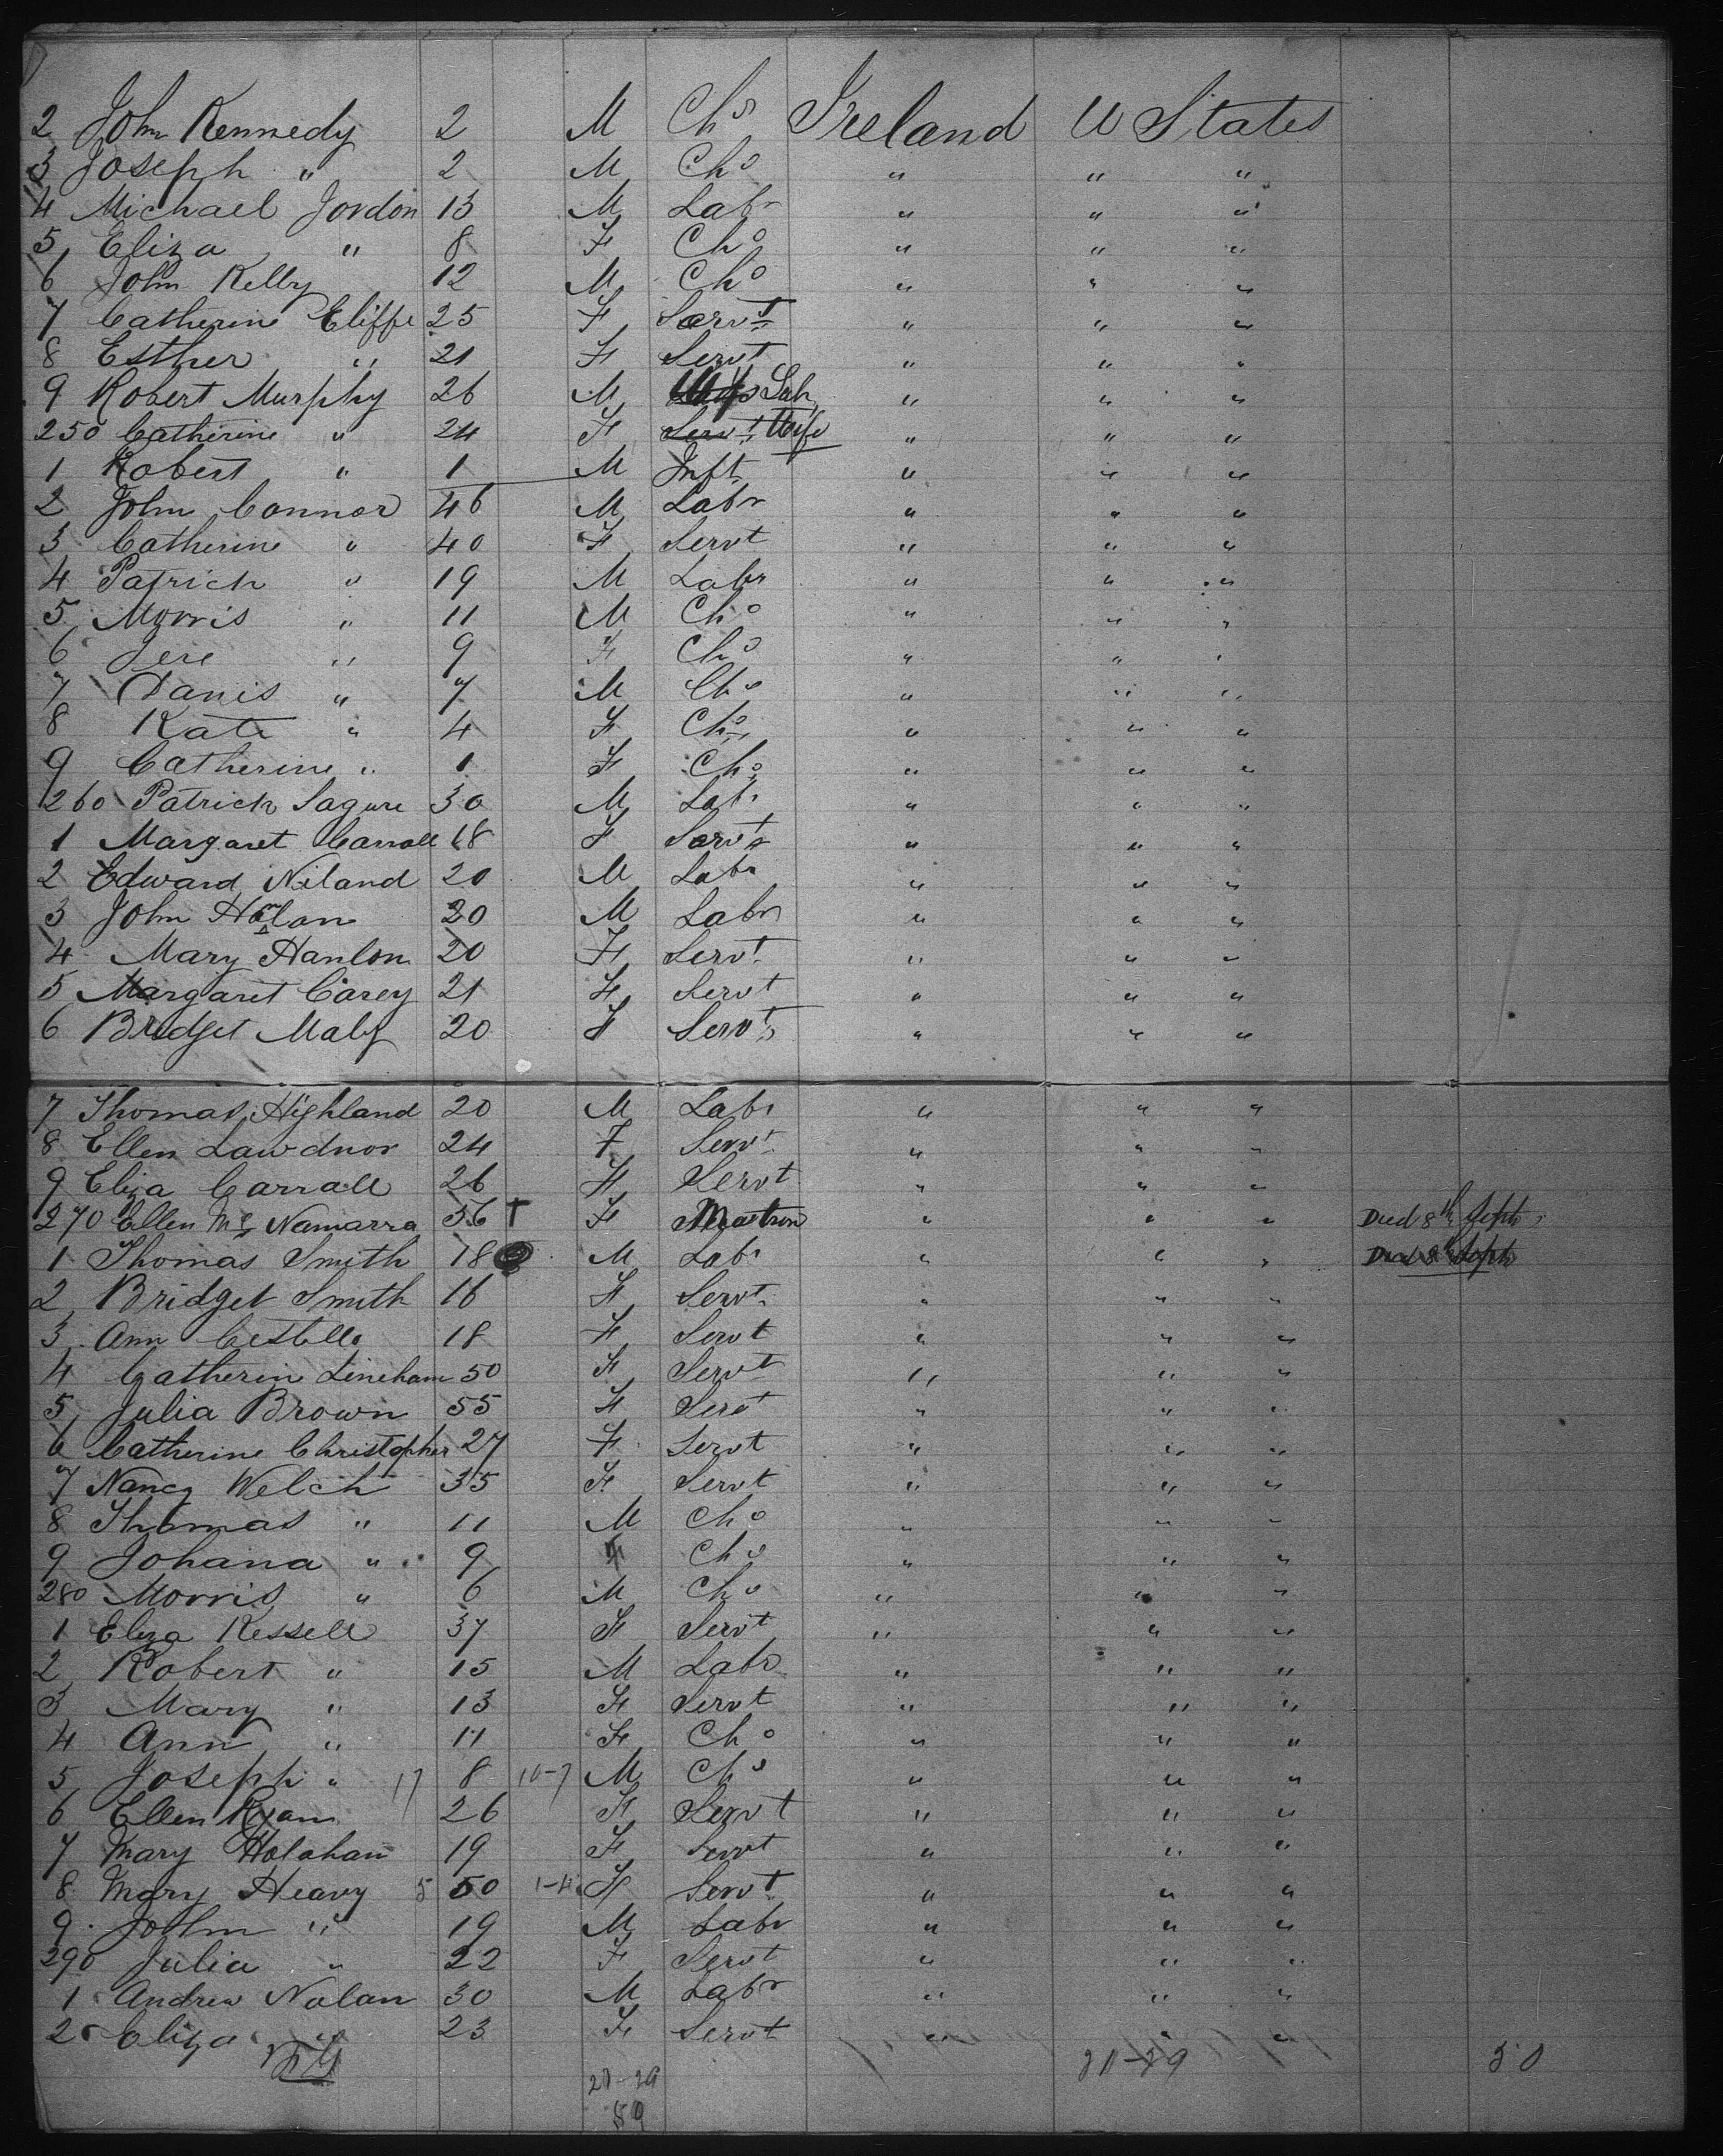 2 John Kennedy 2 M Chd Ireland U States
3 Joseph " 2 M Chd " " "
4 Michael Jordon 13 M Labr " " "
5 Eliza " 8 F Chd " " "
6 John Kelly 12 M Chd " " "
7 Catherine Cliffe 25 F Servt " " "
8 Esther " 21 F Servt " " "
9 Robert Murphy 26 M Lab " " "
250 Catherine " 24 F Servt Wife " " "
1 Robert " 1 M Inft " " "
2 John Connor 46 M Labr " " "
3 Catherine " 40 F Servt " " "
4 Patrick " 19 M Labr " " "
5 Morris " 11 M Chd " " "
6 Jere " 9 F Chd " " "
7 Danis " 7 M Chd " " "
8 Kate " 4 F Chd " " "
9 Catherine " 1 F Chd " " "
260 Patrick Sagure 30 M Labr " " "
1 Margaret Carroll 18 F Servt " " "
2 Edward Niland 20 M Labr " " "
3 John 20 M Labr " " "
4 Mary Hanlon 20 F Servt " " "
5 Margaret Carey 21 F Servt " " "
6 Bridget 20 F Servt " " "
7 Thomas Highland 20 M Labr " " "
8 Ellen Lawdnor 24 F Servt " " "
9 Eliza Carroll 26 F Servt " " "
270 Ellen Mc Namarra 56 † F Matron " " " Died 8th Sept
1 Thomas Smith 18 M Labr " " " Died 8th Sept
2 Bridget Smith 16 F Servt " " "
3 Ann Costello 18 F Servt " " "
4 Catherin Lineham 50 F Servt " " "
5 Julia Brown 55 F Servt " " "
6 Catherine Christopher 27 F Servt " " "
7 Nancy Welch 35 F Servt " " "
8 Thomas " 11 M Chd " " "
9 Johana " 9 F Chd " " "
280 Morris " 6 M Chd " " "
1 Eliza Kessell 37 F Servt " " "
2 Robert " 15 M Labr " " "
3 Mary " 13 F Servt " " "
4 Ann " 11 F Chd " " "
5 Joseph " 17 8 10-7 M Chd " " "
6 Ellen Ryan 26 F Servt " " "
7 Mary Holohan 19 F Servt " " "
8 Mary Heavy 5 50 1-4 F Servt " " "
9 John " 19 M Labr " " "
290 Julia " 22 F Servt " " "
1 Andrew Nolan 30 M Labr " " "
2 Eliza " 23 F Servt " " "
21-29 50
21-29